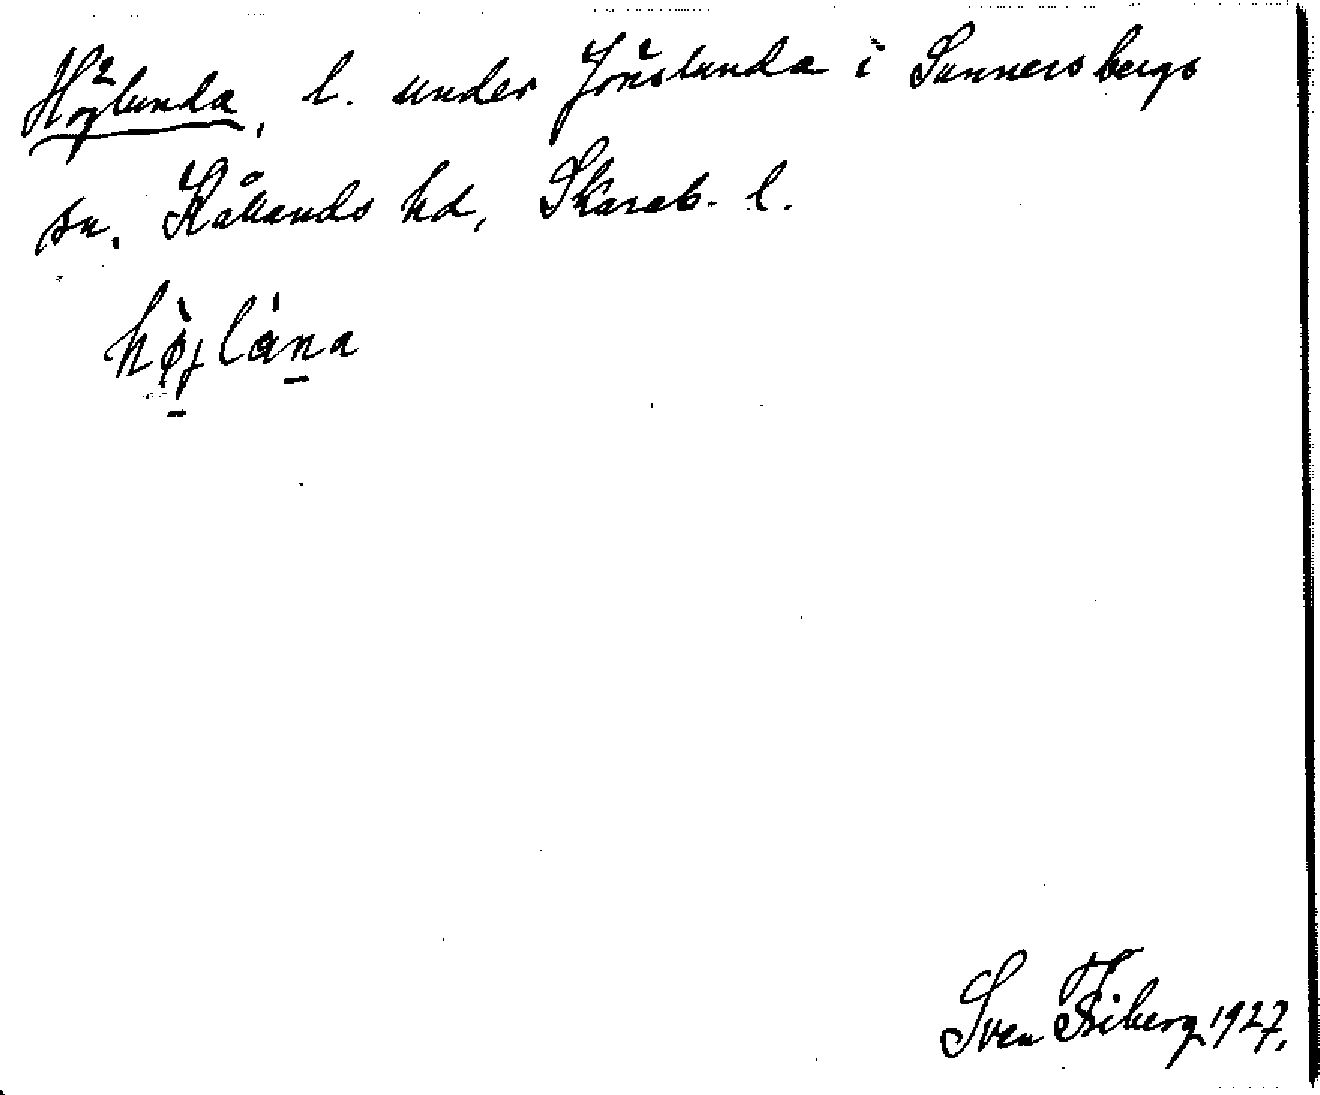 Höglunda, l. under Jönslunda i Sunnersbergs
sn. Kållands hd, Skarab. l.
hø̀jlána
Sven Friberg 1927.